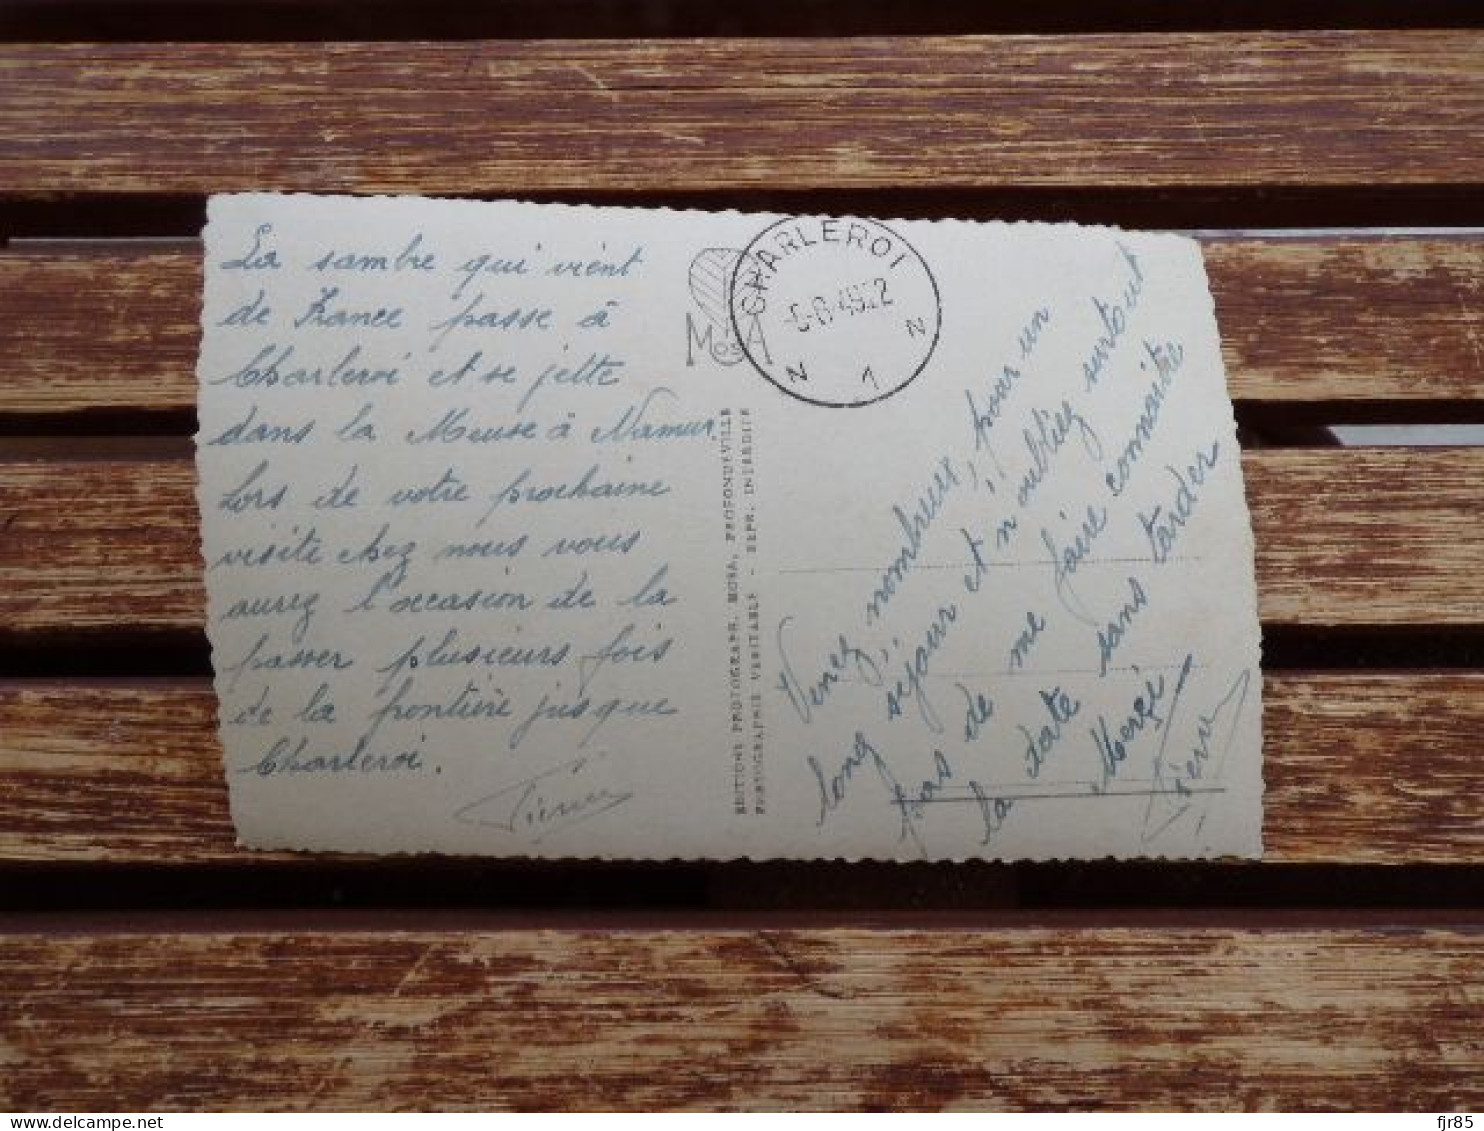 La sambre qui vient
de France passe à
Charleroi et se jette
dans la Meuse à Namur.
Lors de votre prochaine
visite chez nous vous
aurez l'occasion de la
passer plusieurs fois
de la frontière jusque
Charleroi.
MOSA
CHARLEROI
N 1 N
EDITIONS PHOTOGRAPH. MOSA, PROFONDEVILLE
PHOTOGRAPHIE VERITABLE - REPR. INTERDITE
Venez nombreux, pour un
long séjour et n'oubliez surtout
pas de me faire connaître
la date sans tarder
Merci
Pierre
fjr85